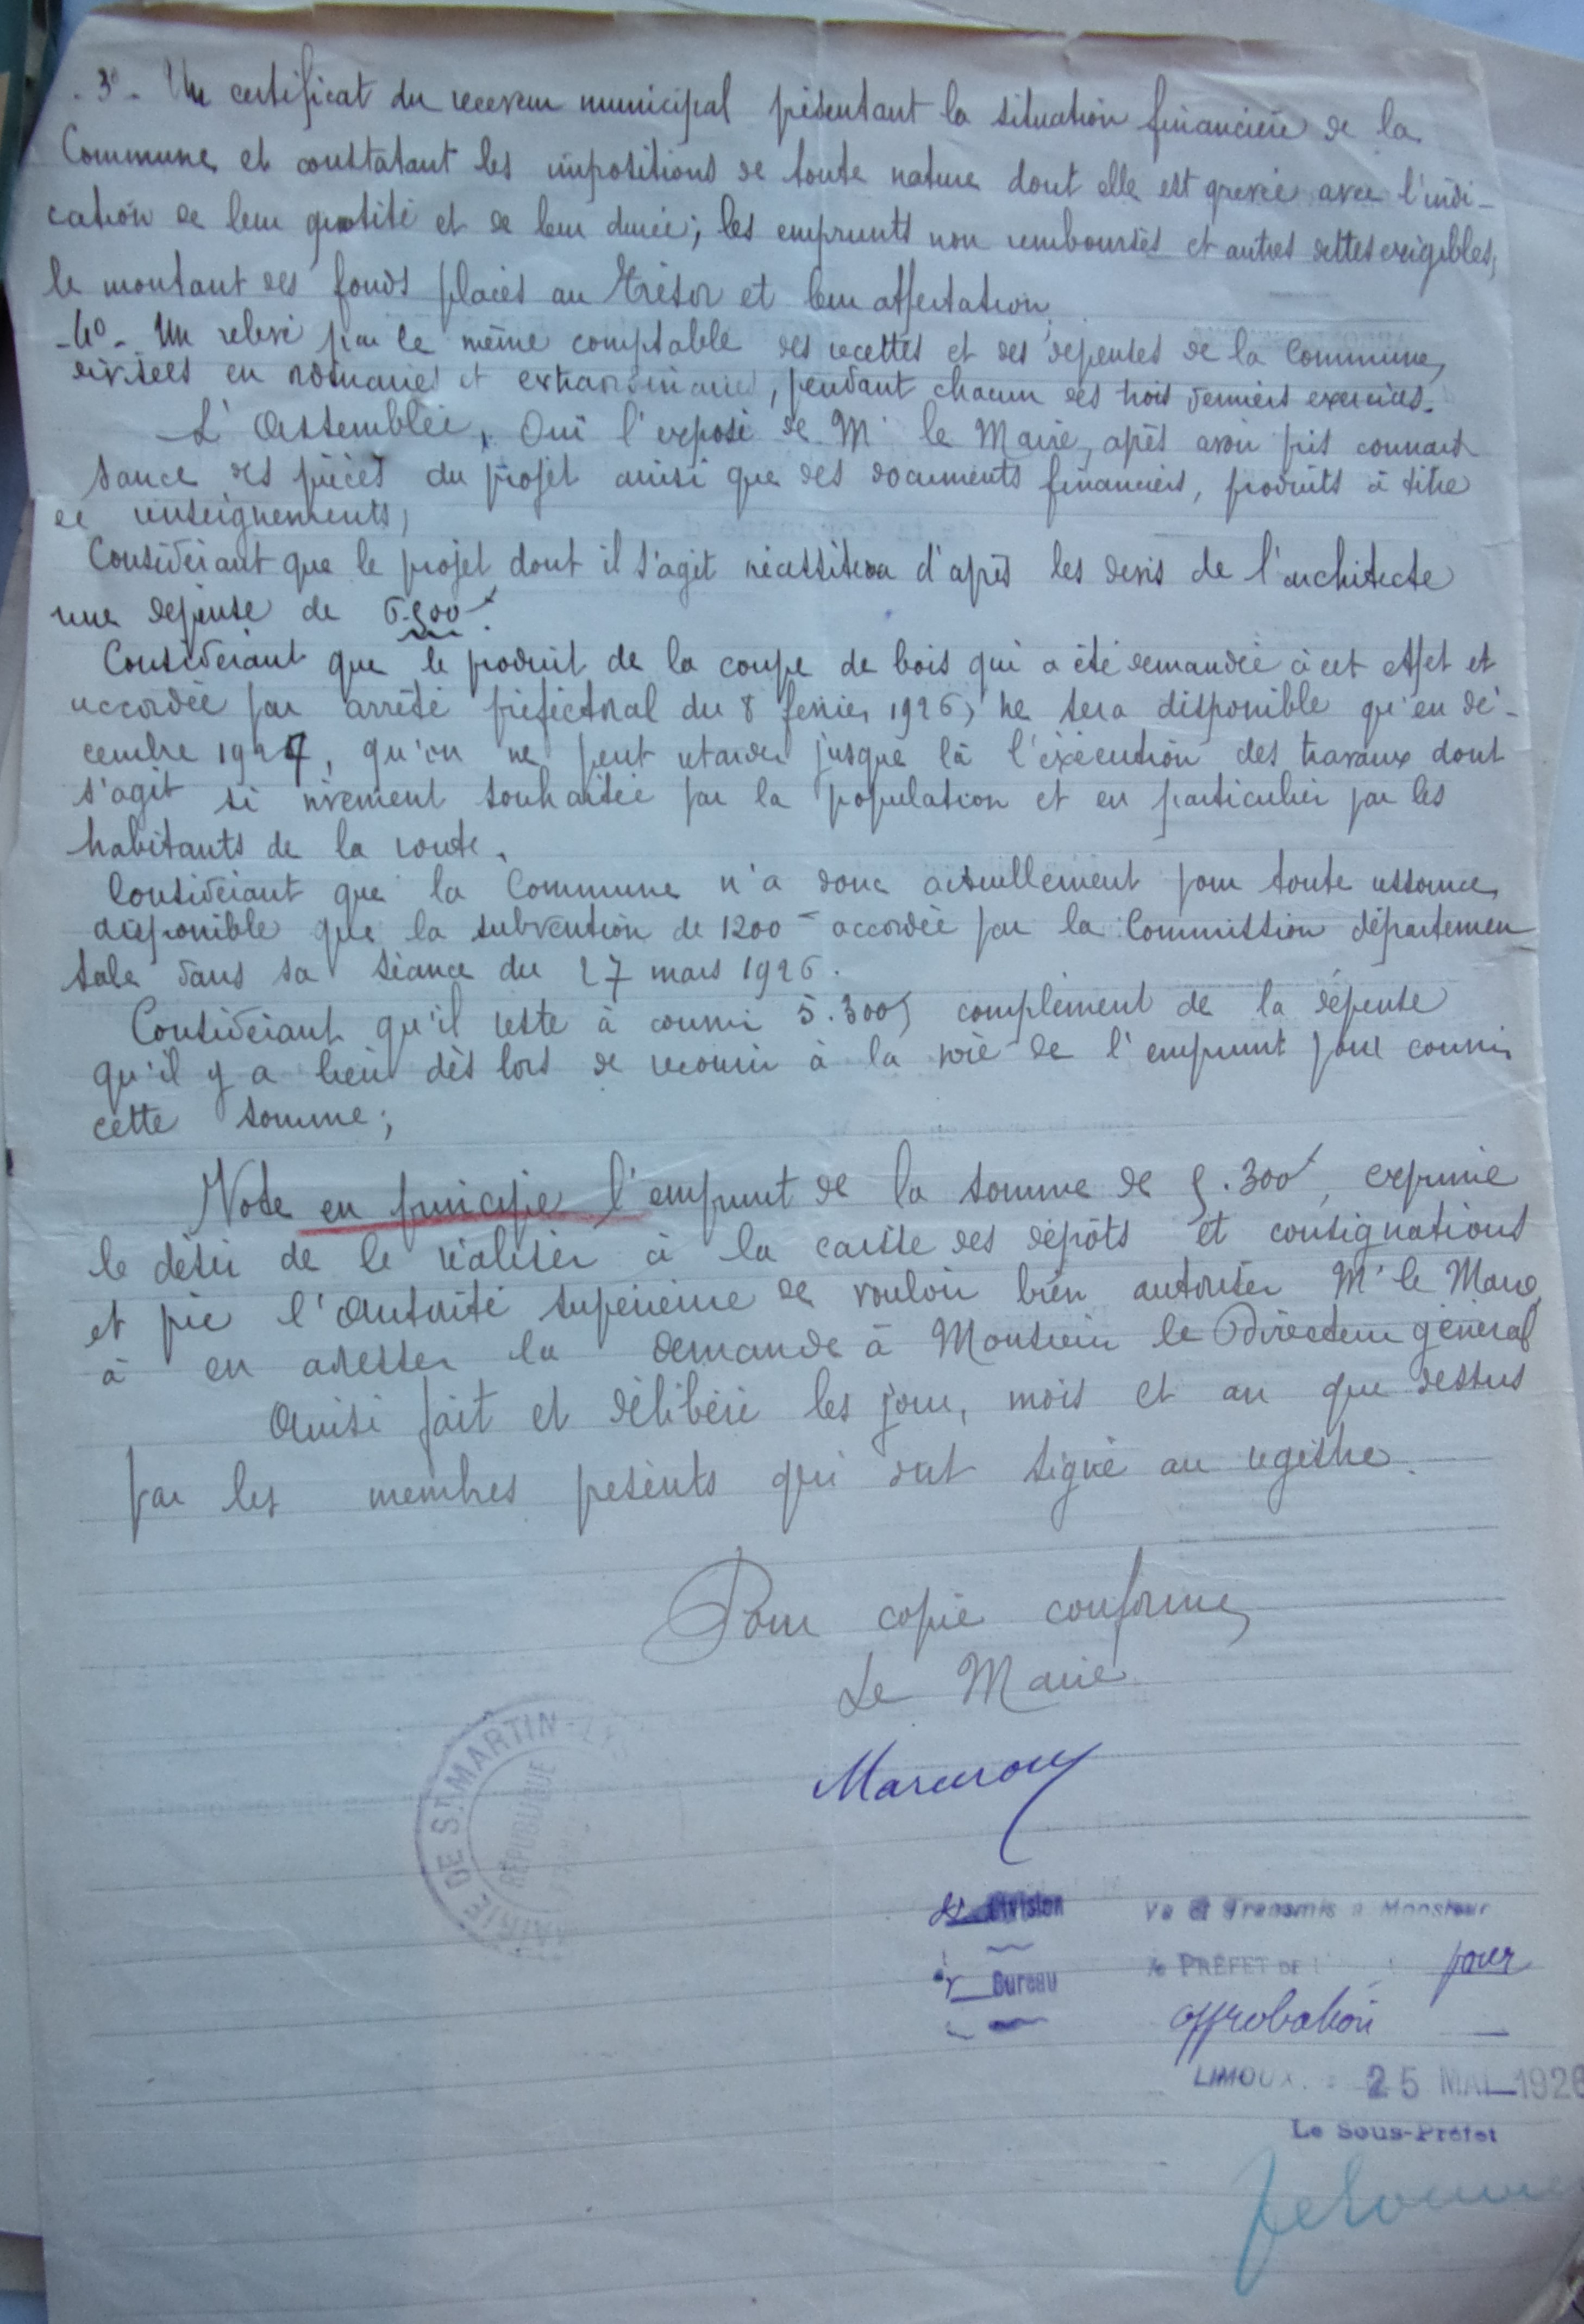 - 3° - Un certificat du receveur municipal présentant la situation financière de la
Commune et constatant les impositions de toute nature dont elle est grevée avec l'indi-
cation de leur quotité et de leur durée; les emprunts non remboursés et autres dettes exigibles,
le montant des fonds placés au Trésor et leur affectation.
- 4° - Un relevé par le même comptable des recettes et des dépenses de la Commune,
divisées en ordinaires et extraordinaires, pendant chacun des trois derniers exercices.
L'Assemblée, Ouï l'exposé de Mr le Maire, après avoir pris connais
sance des pièces du projet ainsi que des documents financiers, produits à titre
de renseignements,
Considérant que le projet dont il s'agit nécessitera d'après les devis de l'architecte
une dépense de 6.500f.
Considérant que le produit de la coupe de bois qui a été demandée à cet effet et
accordée par arrêté préfectoral du 8 février 1926, ne sera disponible qu'en dé-
cembre 1927, qu'on ne peut retarder jusque là l'éxécution des travaux dont
s'agit si vivement souhaitée par la population et en particulier par les
habitants de la route.
Considérant que la Commune n'a donc actuellement pour toute ressource
disponible que la subvention de 1200f accordée par la Commission départemen
tale dans sa séance du 27 mars 1926.
Considérant qu'il reste à couvrir 5.300f complément de la dépense
qu'il y a lieu dès lors de recourir à la voie de l'emprunt pour couvrir
cette somme;
Vote en principe l'emprunt de la somme de 5.300f, exprime
le désir de le réaliser à la caisse des dépôts et consignations
et prie l'Autorité supérieure de vouloir bien autoriser Mr le Maire
à en adresser la demande à Monsieur le Directeur général
Ainsi fait et délibéré les jour, mois et an que dessus
par les membres présents qui ont signé au registre.
Pour copie conforme
Le Maire
MAIRIE DE ST MARTIN-LYS
RÉPUBLIQUE
Division
Vu et Transmis à Monsieur
Bureau
le PRÉFET DE l' pour
approbation
LIMOUX. 25 MAI 1926
Le Sous-Préfet